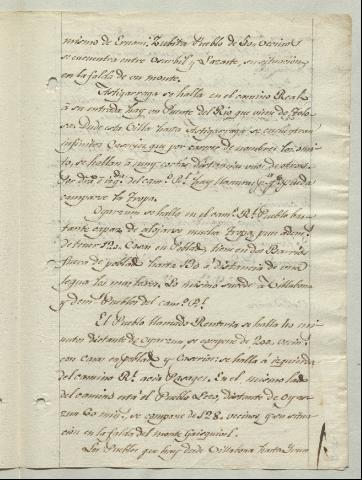 mismo de Ernani. Zubieta Pueblo de 50 vecinos
se encuentra entre Osurbil y Lasarte, su situacion
en la falda de un monte.
Astigarraga se halla en el camino Real
à su entrada hay un Puente del Rio que viene de Tolo
sa. Desde esta Villa hasta Astigarraga se encuentran
infinitos Caserios que por carecer de nombres los omi
to, se hallan à muy cortas distancias unos de otros
por dra. è izqa. del camo. Rl. hay llanuras pa. qe. pueda
camparse la Tropa.
Oyarzun se halla en el camo. Rl. Pueblo bas
tante capaz de alojarse mucha Tropa, pues adems.
de tener 120 Casas en Poblado, tiene en dos Barrios
fuera de poblado hasta 180 à distancia de media
legua los mas lexos. Lo mismo sucede à Villabona
y demas Pueblos del camo. Rl.
El Pueblo llamado Renteria se halla 40 mi
nutos distante de Oyarzun se compone de 200 vecins.
con casas en poblado y Caserios: se halla à izquierda
del camino Rl. acia Pasages. En el mismo lado
del camino està el Pueblo Lezo, distante de Oyar
zun 60 ms., se compone de 128 vecinos y su situa
cion en la falda del monte Gaizquivel.
Los Pueblos que hay desde Villabona hasta Irun